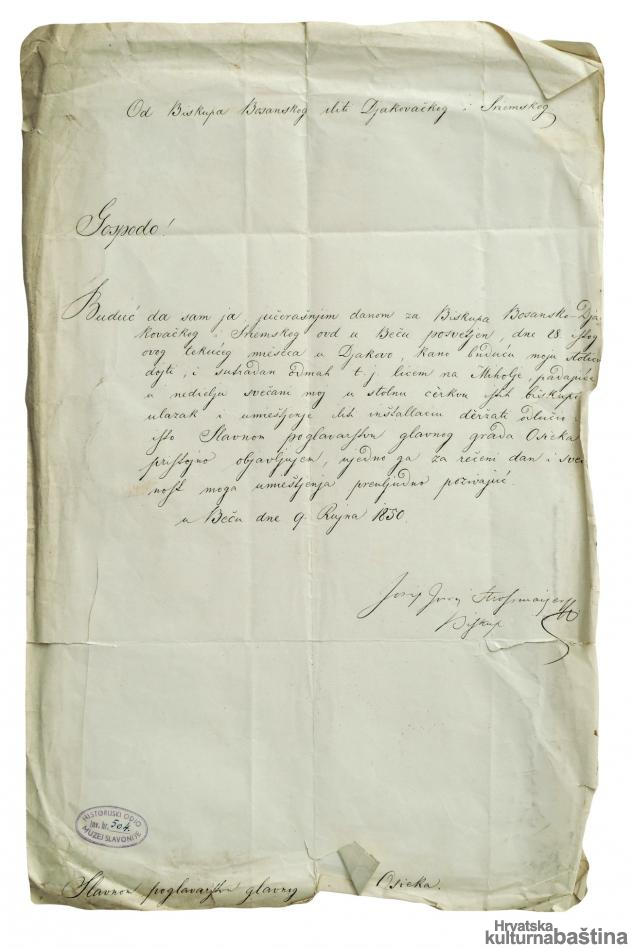 Od Biskupa Bosanskog iliti Djakovačkog i Sremskog
Gospodo!
Budući da sam ja jučerašnjim danom za Biskupa Bosansko-Dja-
kovačkog i Sremskog ovd u Beču posvetjen, dne 28. istog
ovog tekućeg měsěca u Djakovo, kano buduću moju stolicu
dojti, i sutradan odmah t. j. lićem na Miholje, padajuće
u nedělju svečani moj u stolnu cèrkvu istih biskupi
ulazak i uměštjenje ilit inštallaciu dèržati odlučio
isto Slavnom poglavarstvu glavnog grada Osieka
pristojno objavljujem, ujedno ga za rečeni dan i sveča
nost moga uměštjenja preuljudno pozivajuć.
u Beču dne 9. Rujna 1850.
Josip Juraj Strossmajer
Biskup
HISTORIJSKI ODIO
Inv. br. 504.
MUZEJ SLAVONIJE
Slavnom poglavarstvu glavnog Osieka.
Hrvatska
kulturnabaština